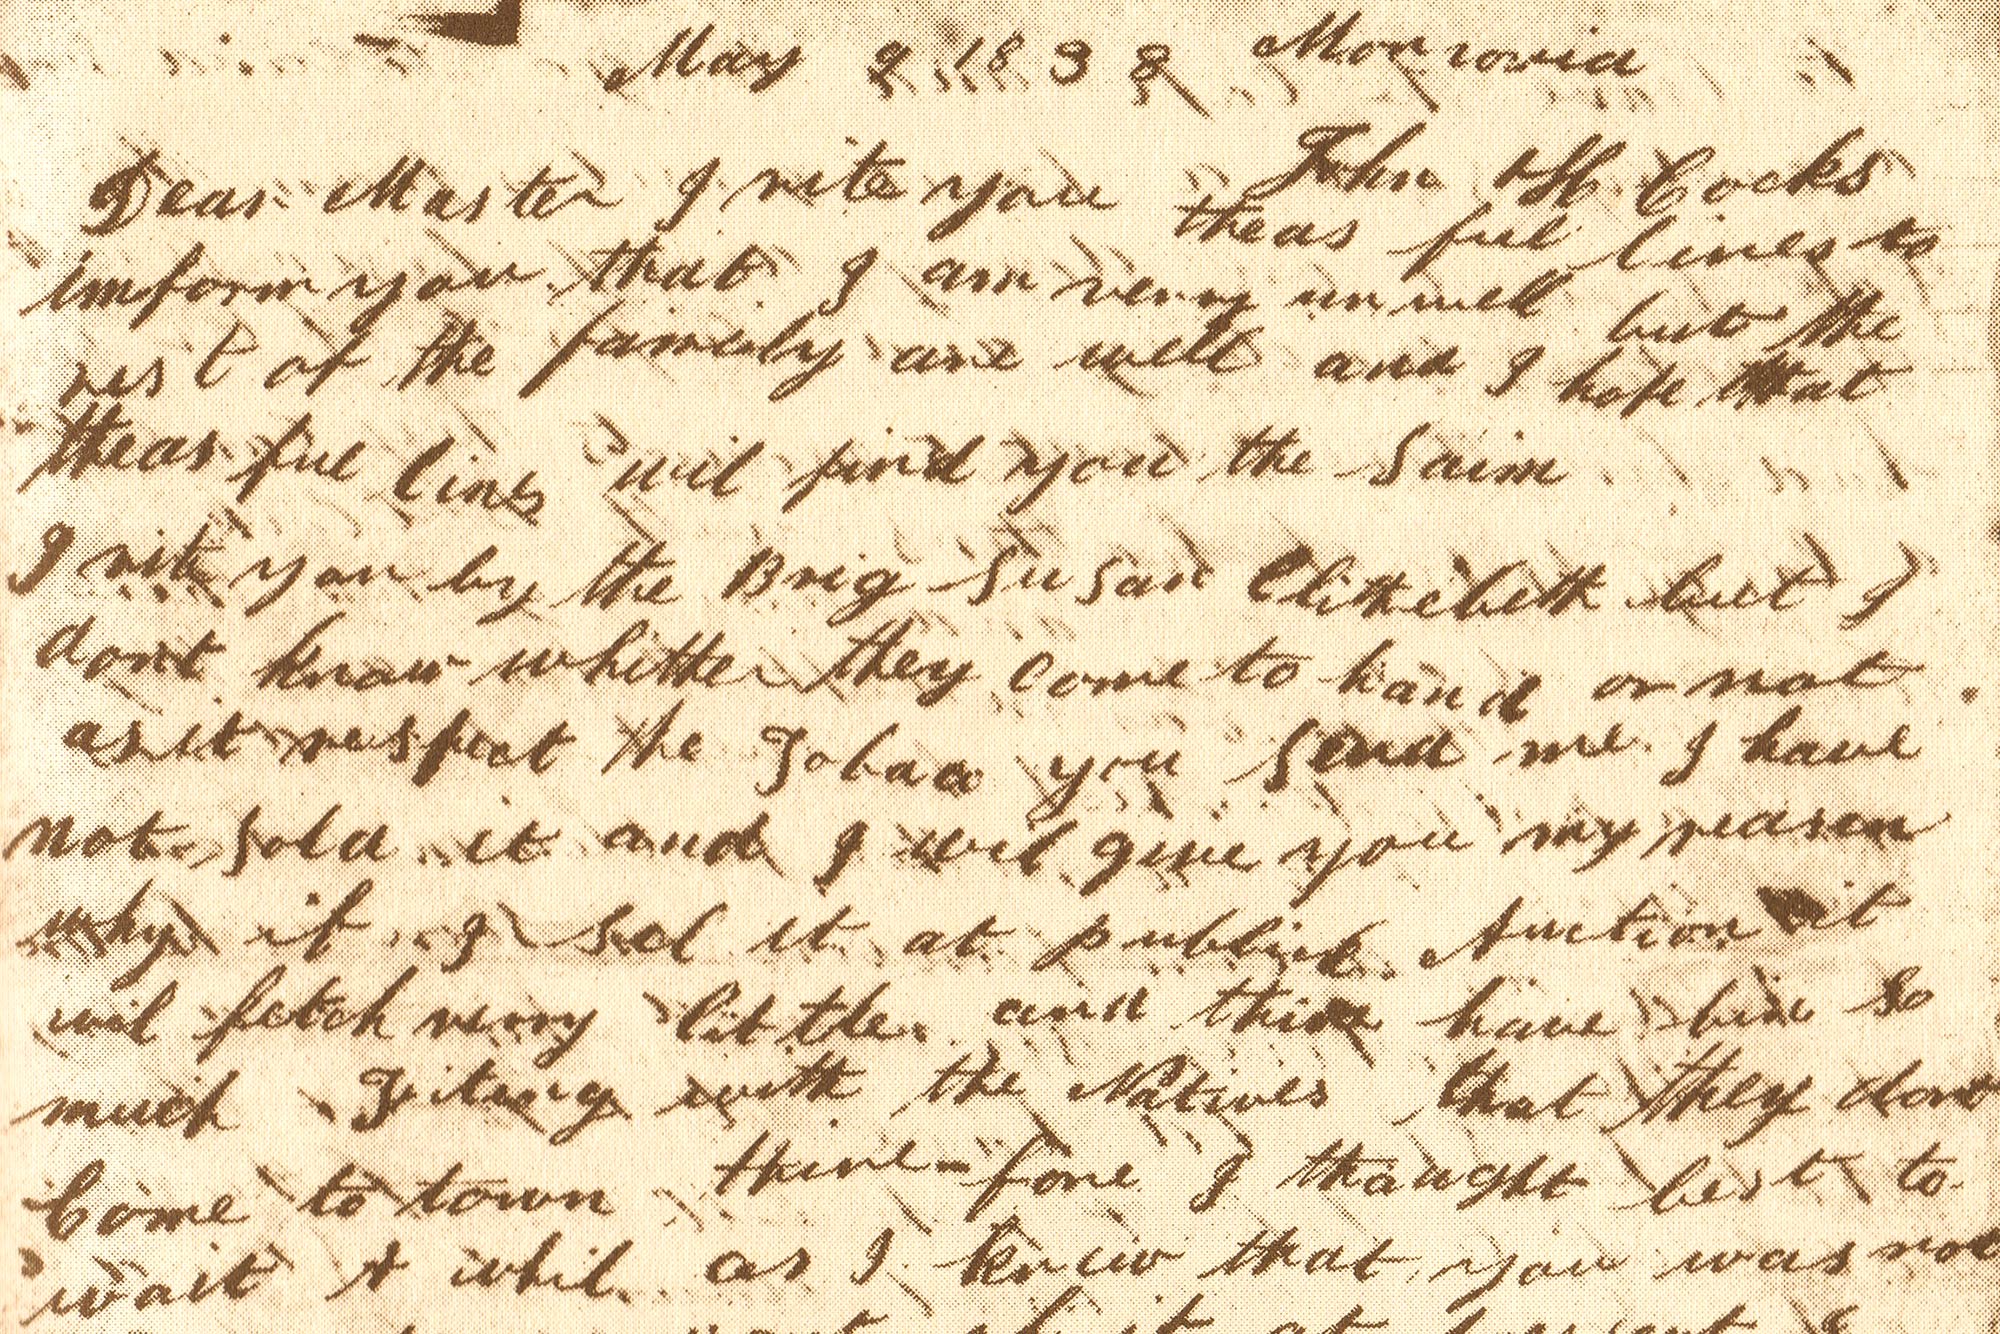 May 9 1838 Monrovia
Dear Master I rite you John H Cocks
theas ful lines to
imform you that I am very un well but the
rest of the famely are well and I hope that
theas ful lines wil find you the Saim
I rite you by the Brig Susan Elithebeth but I
dont know whitther they come to hand or not
as it respect the Tobaco you Send me I have
not sold it and I wil give you my reason
why if I sel it at publick Auction it
wil fetch very little and thire have bin so
much Fiting with the Natives that they dont
Come to town thire-fore I thaught best to
wait A whil as I knew that you was not